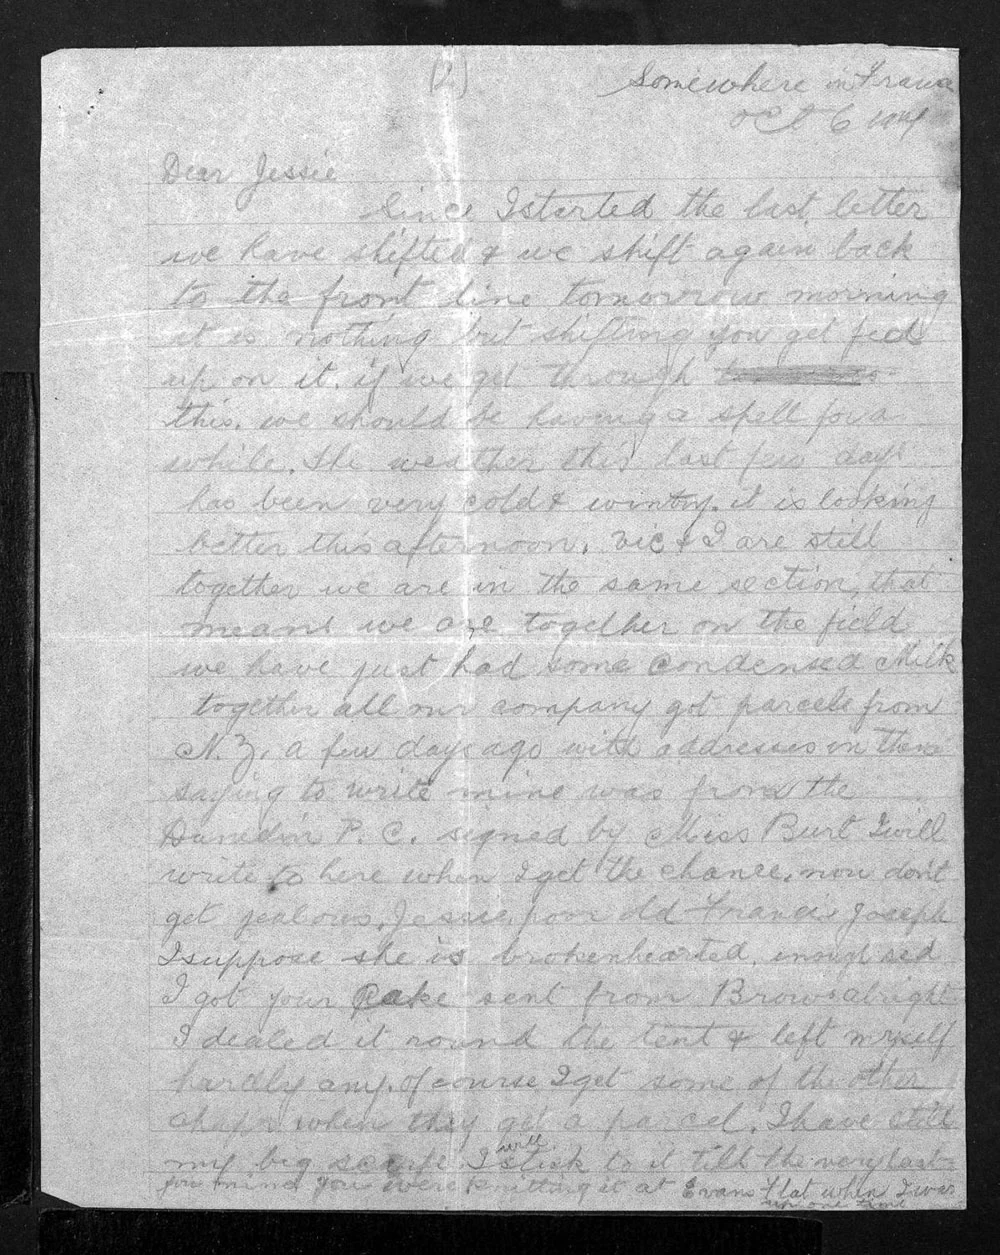 (1)
Somewhere in France
Oct 6 1917
Dear Jessie
Since I started the last letter
we have shifted & we shift again back
to the front line tomorrow morning
it is nothing but shifting you get fed
up on it. if we get through
this. we should be having a spell for a
while. The weather this last few days
has been very cold & wintry. it is looking
better this afternoon. Vic & I are still
together we are in the same section, that
means we are together on the field
we have just had some condensed Milk
together all our company got parcels from
N.Z. a few days ago with addresses in them
saying to write mine was from the
Dunedin P. C. signed by Miss Burt I will
write to here when I get the chance. now don't
get jealous, Jessie. poor old Francis Joseph
I suppose she is brokenhearted. enough sed
I got your Cake sent from Browns alright
I dealed it round the tent & left myself
hardly any. of course I get some of the other
chaps when they get a parcel. I have still
my big scarfe I will stick to it till the very last
you mind you were knitting it at Evans Flat when I was
up one time